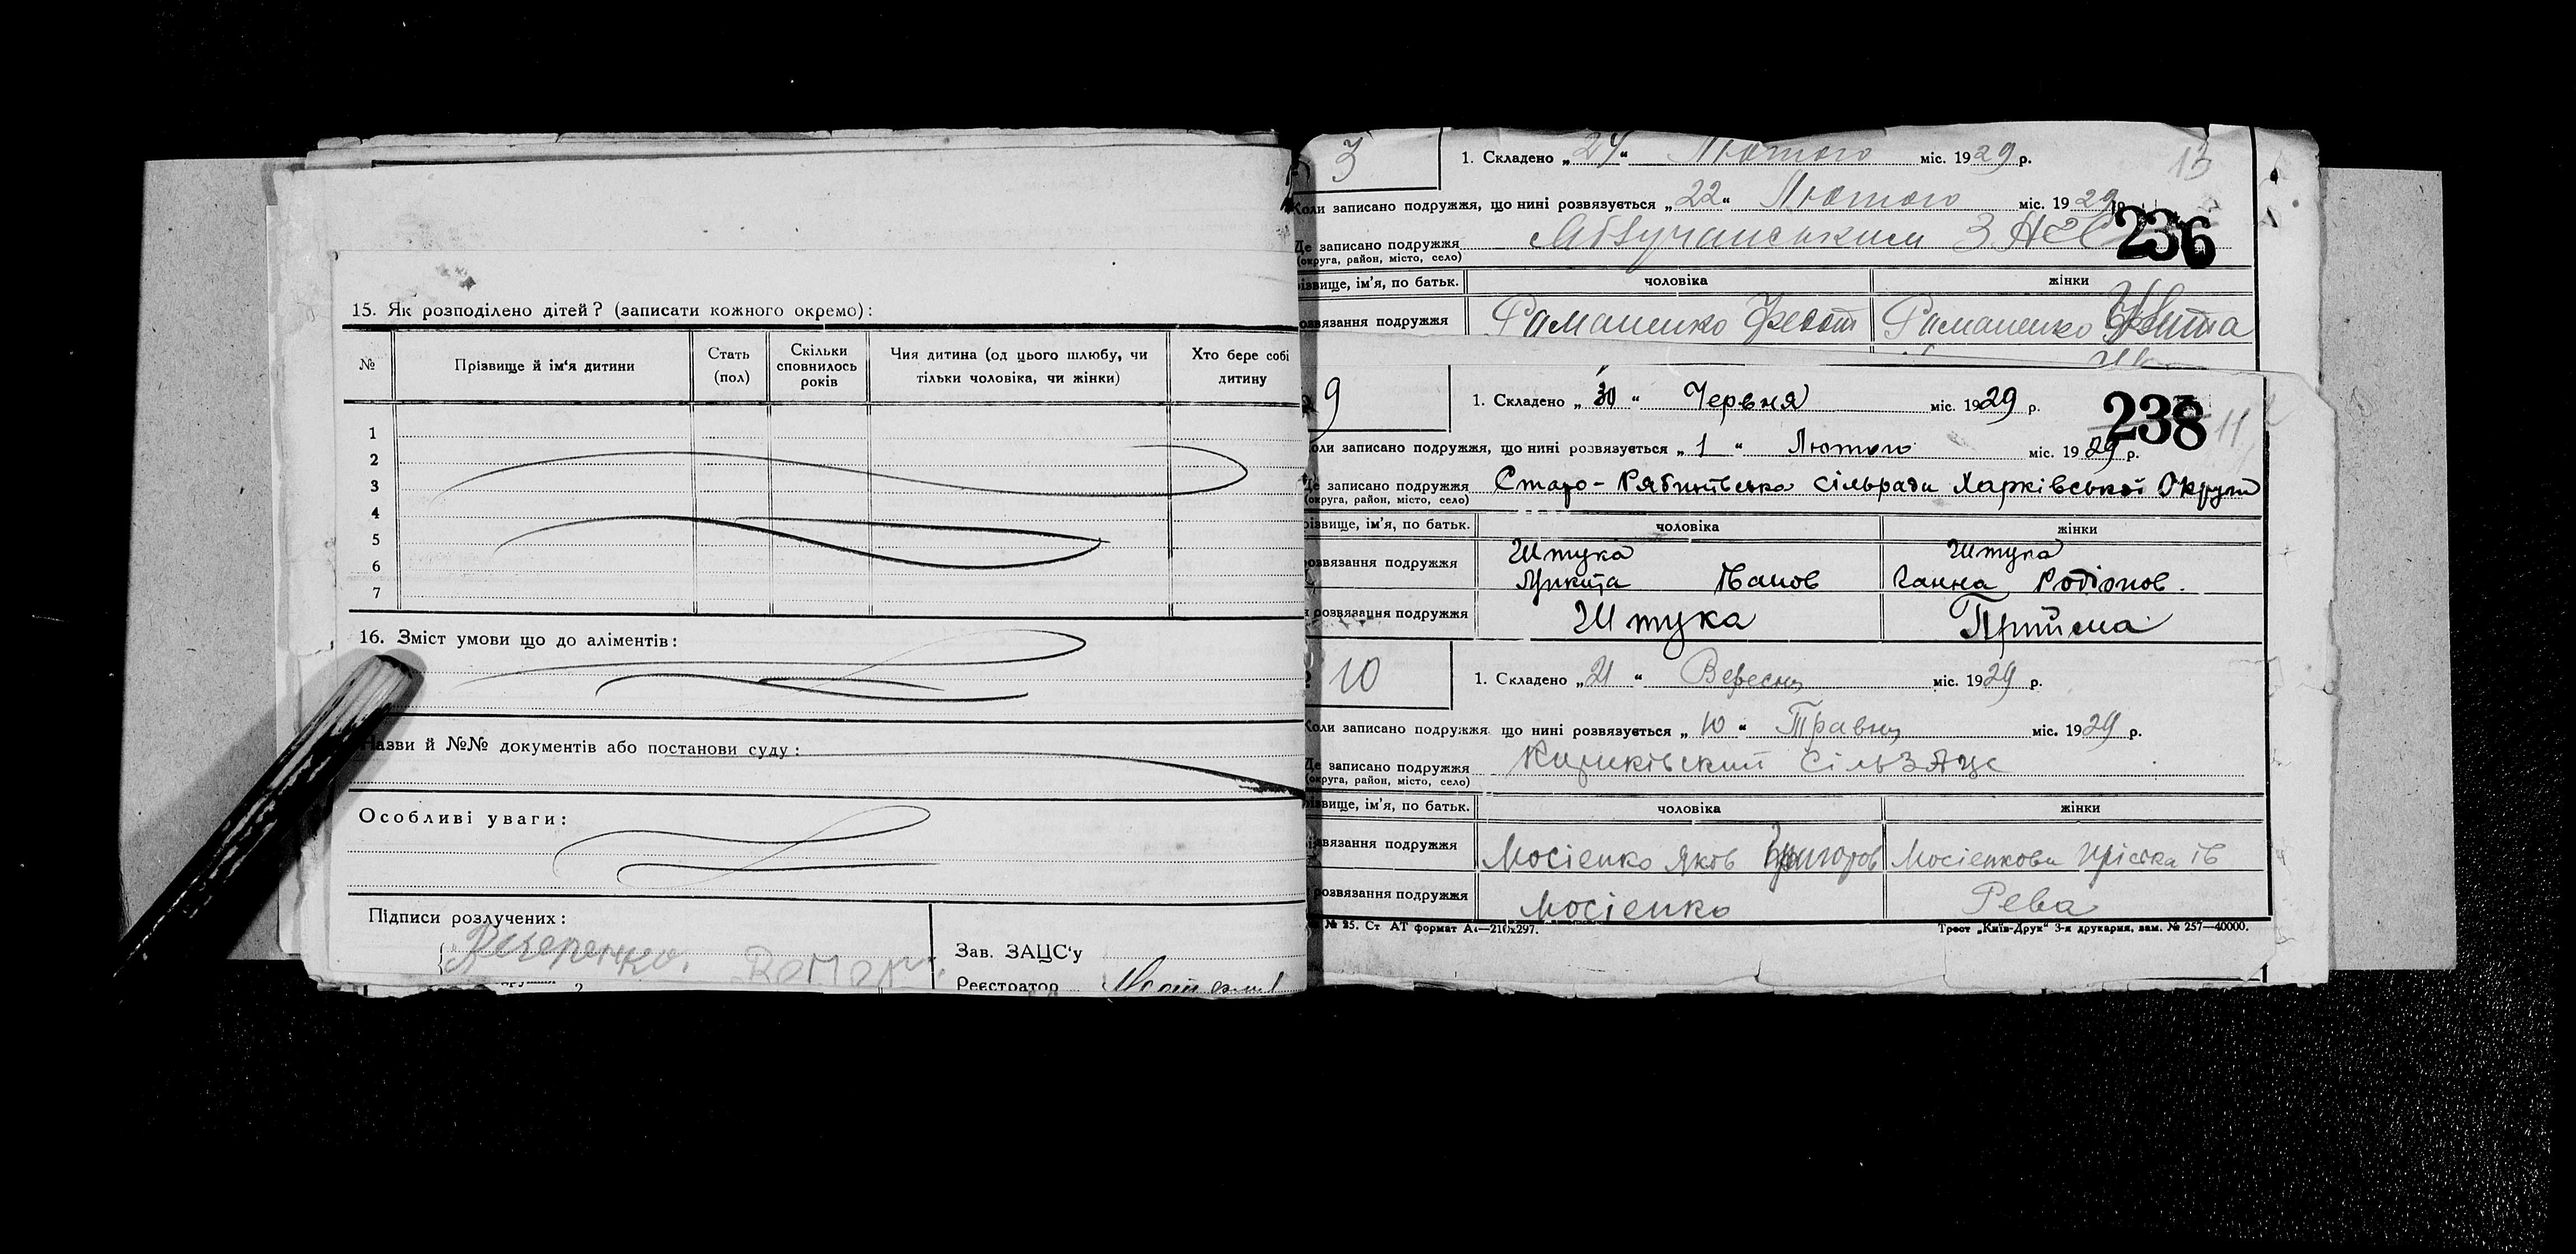 15. Як розподілено дітей? (записати кожного окремо):
№ Прізвище й ім'я дитини Стать (пол) Скільки сповнилось років Чия дитина (од цього шлюбу, чи тільки чоловіка, чи жінки) Хто бере собі дитину
1
2
3
4
5
6
7
16. Зміст умови що до аліментів:
Назви й №№ документів або постанови суду:
Особливі уваги:
Підписи розлучених:
Зав. ЗАЦС'у
Реєстратор
3
1. Складено „24“ Лютого міс. 1929 р.
13
Коли записано подружжя, що нині розвязується „22“ Лютого міс. 1929 р.
236
Де записано подружжя
(округа, район, місто, село)
ізвище, ім'я, по батьк. чоловіка жінки
озвязання подружжя Раманенко Раманенко
9
1. Складено „30“ Червня міс. 1929 р.
238
11
Коли записано подружжя, що нині розвязується „1“ Лютого міс. 1929 р.
Де записано подружжя Старо-Рябинівська сільради Харківської Округи
(округа, район, місто, село)
різвище, ім'я, по батьк. чоловіка жінки
Штука Штука
озвязання подружжя Микита Іванов Ганна Родіонов.
розвязання подружжя Штука Прийма
10
1. Складено „21“ Вересня міс. 1929 р.
Коли записано подружжя що нині розвязується „10“ Травня міс. 1929 р.
Де записано подружжя Кириківский СільЗАЦС
(округа, район, місто, село)
різвище, ім'я, по батьк. чоловіка жінки
звязання подружжя Мосієнко Яків Григоров Мосієнкова Пріська Ів
розвязання подружжя Мосієнко Рева
№ 25. Ст АТ формат А4—210х297.
Трест „Київ-Друк“ 3-я друкарня, зам. № 257—40000.